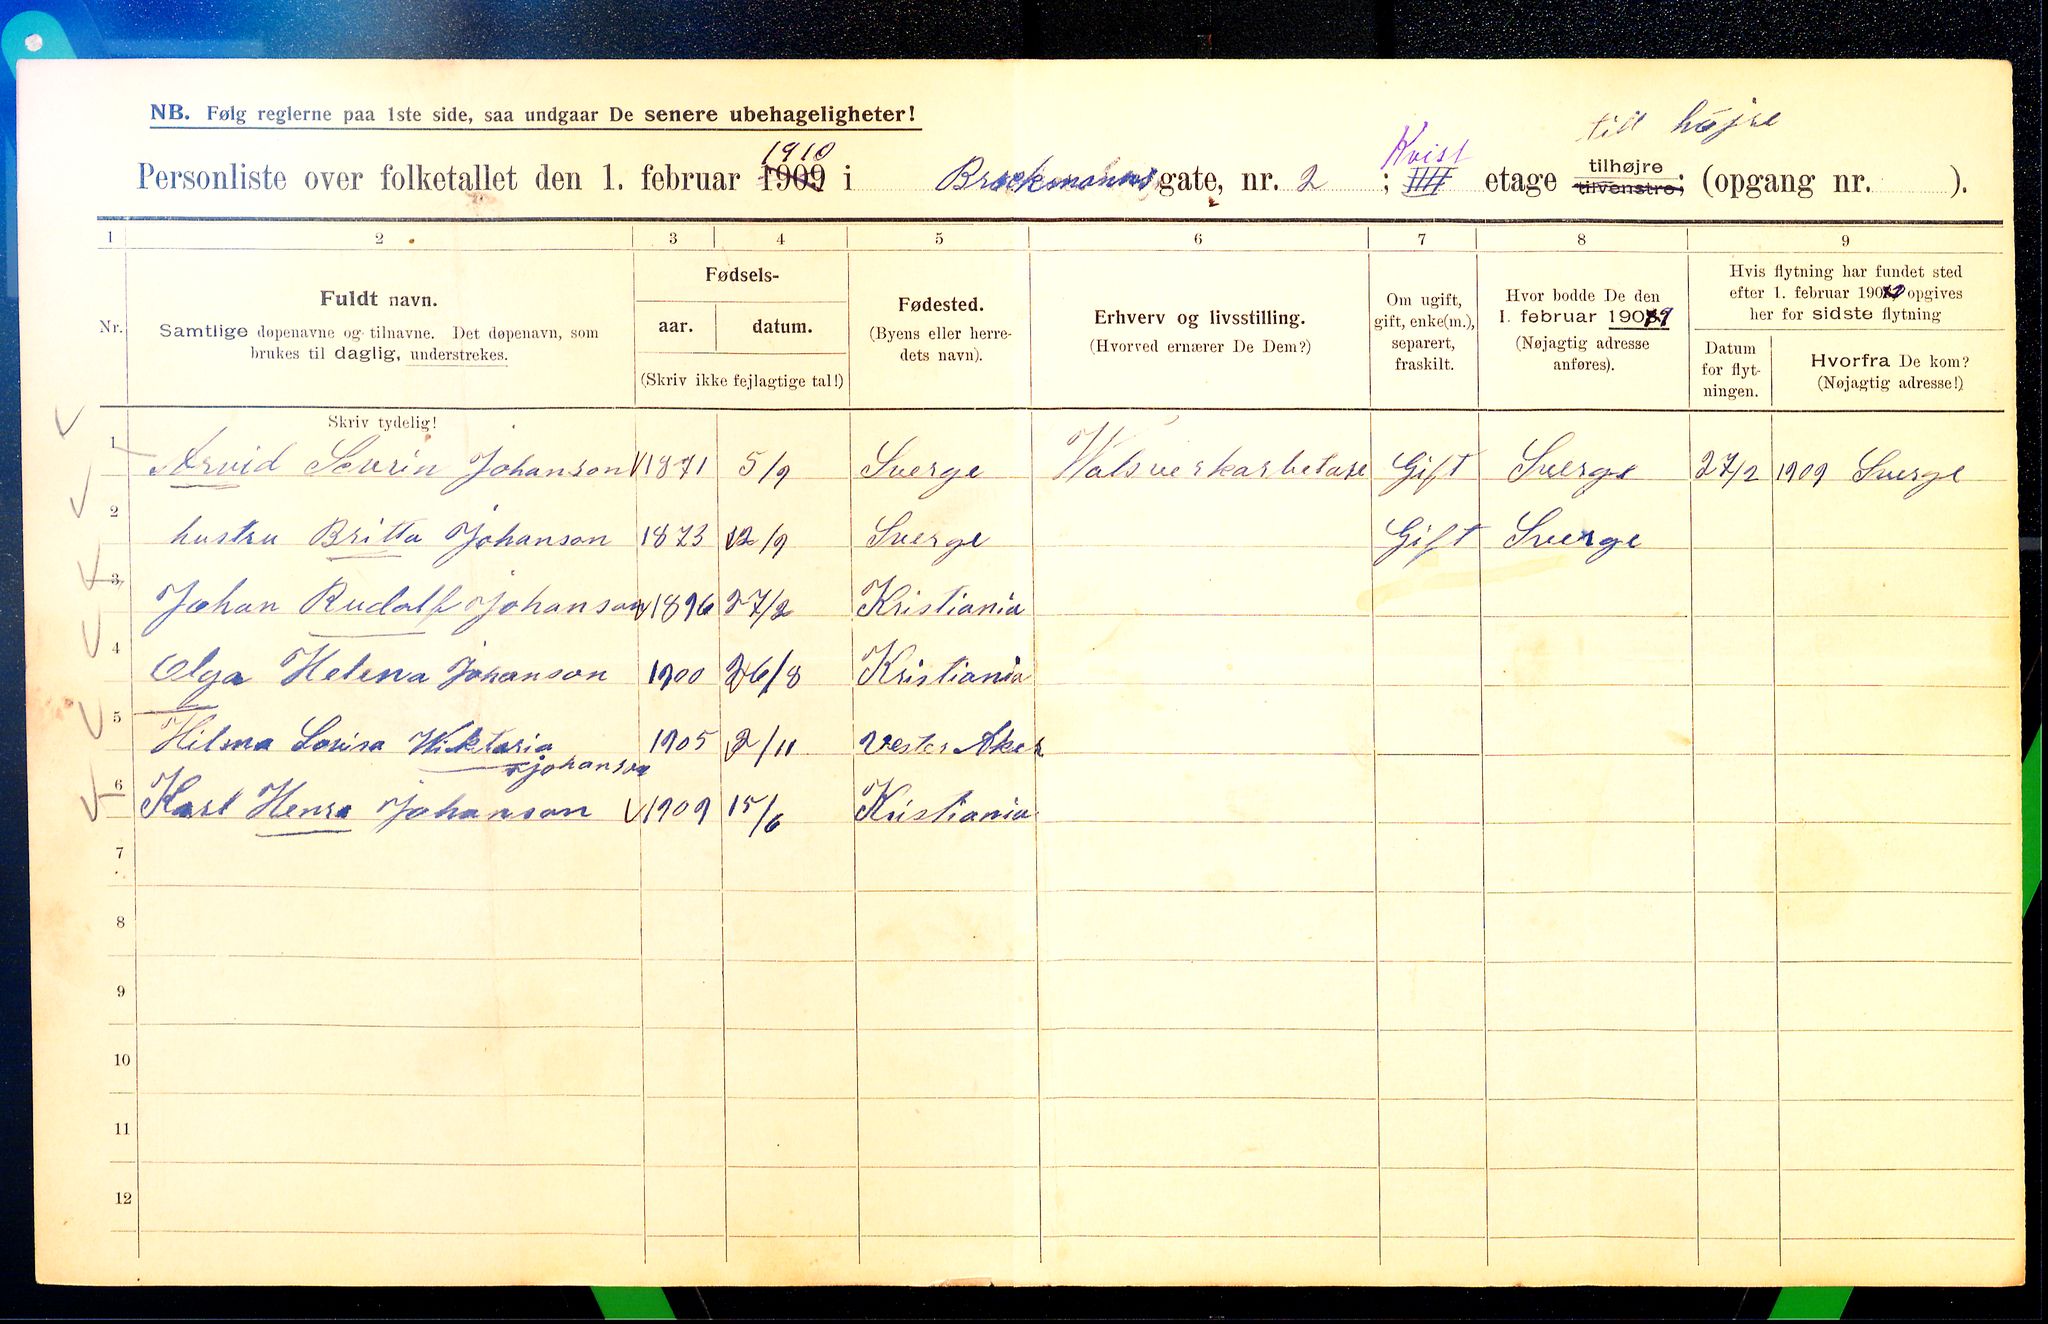 till højre
NB. Følg reglerne paa 1ste side, saa undgaar De senere ubehageligheter!
1910 Kvist
Personliste over folketallet den 1. februar 1909 i Brockmannsgate, nr. 2 ; IIII etage tilhøjre tilvenstre; (opgang nr. ).
1 2 3 4 5 6 7 8 9
Nr.
Fuldt navn.
Samtlige døpenavne og tilnavne. Det døpenavn, som
brukes til daglig, understrekes.
Fødsels-
aar. datum.
(Skriv ikke fejlagtige tal!)
Fødested.
(Byens eller herre-
dets navn).
Erhverv og livsstilling.
(Hvorved ernærer De Dem?)
Om ugift,
gift, enke(m.),
separert,
fraskilt.
Hvor bodde De den
1. februar 1909
(Nøjagtig adresse
anføres).
Hvis flytning har fundet sted
efter 1. februar 1909 opgives
her for sidste flytning
Datum
for flyt-
ningen.
Hvorfra De kom?
(Nøjagtig adresse!)
Skriv tydelig!
1 Arvid Sevrin Johanson 1871 5/9 Sverge Valsverkarbetare Gift Sverge 27/2 1909 Sverge
2 hustru Britta Johanson 1873 12/9 Sverge Gift Sverge
3 Johan Rudolf Johanson 1896 27/2 Kristiania
4 Olga Helena Johanson 1900 26/8 Kristiania
5 Hilma Lovisa Wiktoria 1905 2/11 Vester Aker
Johanson
6 Karl Henre Johanson 1909 15/6 Kristiania
7
8
9
10
11
12